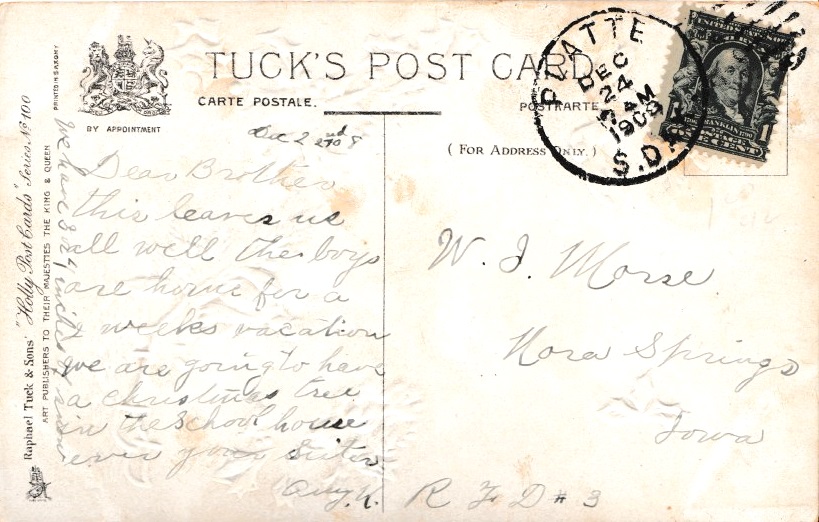 TUCK'S POST CARD.
CARTE POSTALE.
POSTKARTE
BY APPOINTMENT
( FOR ADDRESS ONLY. )
PRINTED IN SAXONY
Raphael Tuck & Sons' "Holly Post Cards" Series No 100
ART PUBLISHERS TO THEIR MAJESTIES THE KING & QUEEN
PLATTE
DEC
24
AM
S.D.
FRANKLIN
Dec 22nd
Dear Brother
this leaves us
all well the boys
are home for a
weeks vacation
we are going to have
a christmas tree
in the school house
ever your Sister
We have 3 or 4 inches of snow
W. J. Morse
Nora Springs
Iowa
R F D # 3